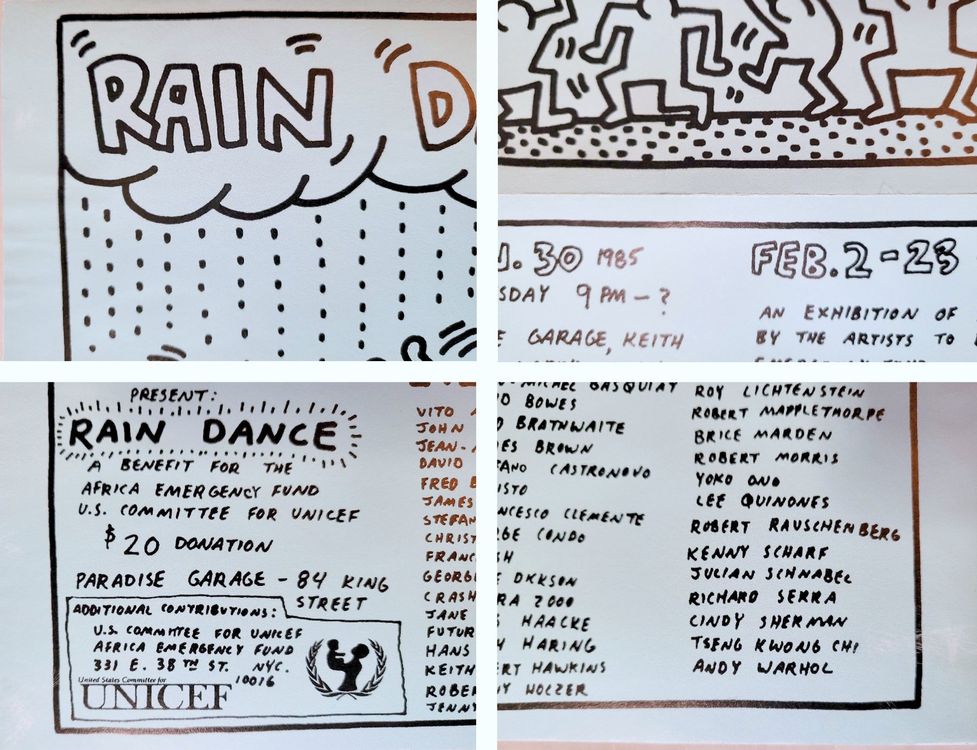 RAIN D
. 30 1985
SDAY 9 PM – ?
GARAGE, KEITH
FEB. 2-28
AN EXHIBITION OF
BY THE ARTISTS TO
PRESENT:
RAIN DANCE
A BENEFIT FOR THE
AFRICA EMERGENCY FUND
U.S. COMMITTEE FOR UNICEF
$20 DONATION
PARADISE GARAGE - 84 KING
STREET
ADDITIONAL CONTRIBUTIONS:
U.S. COMMITTEE FOR UNICEF
AFRICA EMERGENCY FUND
331 E. 38TH ST. NYC.
10016
United States Committee for
UNICEF
VITO
JOHN
JEAN-
DAVID
FRED B
JAMES
STEFAN
CHRIST
FRANC
GEORG
CRASH
JANE
FUTUR
HANS
KEITH
ROBER
JENNY
MICHEL BASQUIAT
BOWES
BRATHWAITE
ES BROWN
ANO CASTRONOVO
ISTO
NCESCO CLEMENTE
GE CONDO
SH
DICKSON
RA 2000
HAACKE
HARING
ERT HAWKINS
NY HOLZER
ROY LICHTENSTEIN
ROBERT MAPPLETHORPE
BRICE MARDEN
ROBERT MORRIS
YOKO ONO
LEE QUINONES
ROBERT RAUSCHENBERG
KENNY SCHARF
JULIAN SCHNABEL
RICHARD SERRA
CINDY SHERMAN
TSENG KWONG CHI
ANDY WARHOL